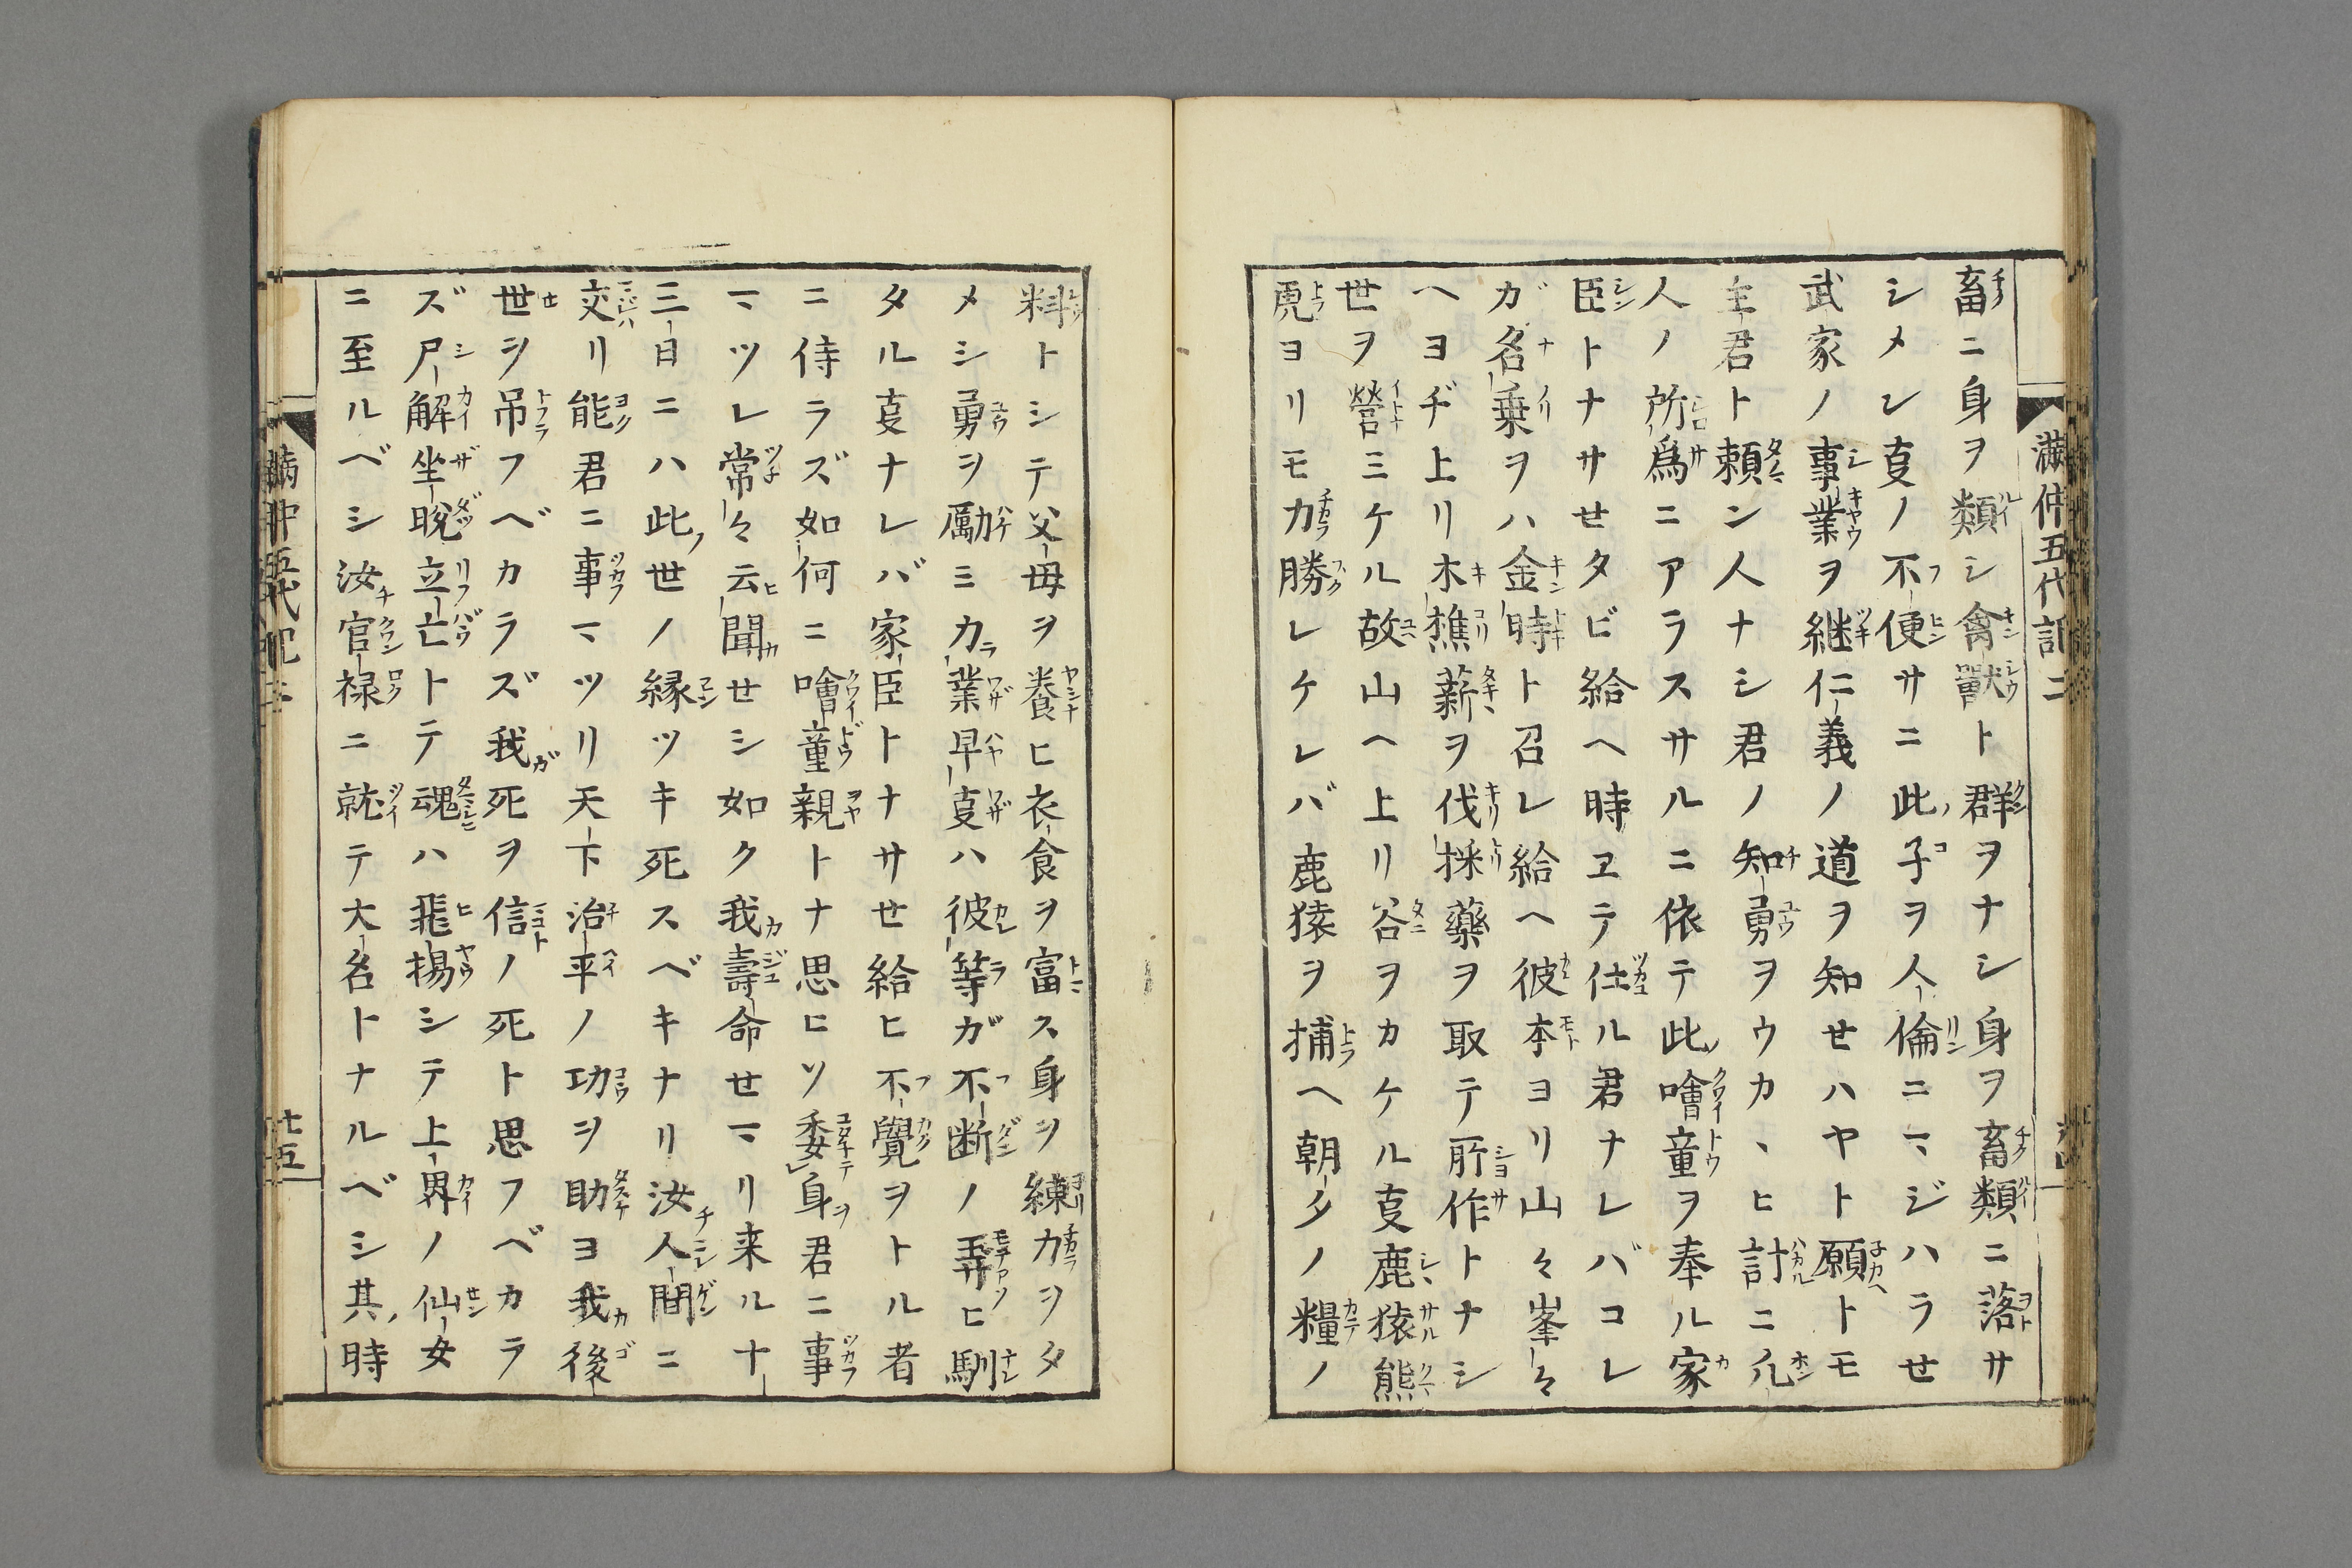 滿仲五代記二
畜ニ身ヲ類シ禽獸ト群ヲナシ身ヲ畜類ニ落サ
シメン㕝ノ不便サニ此子ヲ人倫ニマジハラセ
武家ノ事業ヲ継仁義ノ道ヲ知セハヤト願トモ
主君ト頼ン人ナシ君ノ知勇ヲウカヽヒ計ニ凢
人ノ所爲ニアラスサルニ依テ此噲童ヲ奉ル家
臣トナサセタビ給ヘ時ヱテ仕ル君ナレバコレ
ガ名乗ヲハ金時ト召レ給ヘ彼本ヨリ山々峯々
ヘヨヂ上リ木樵薪ヲ伐採藥ヲ取テ所作トナシ
世ヲ營ミケル故山ヘ上リ谷ヲカケル㕝鹿猿熊
虎ヨリモ力勝レケレバ鹿猿ヲ捕ヘ朝夕ノ糧ノ
料トシテ父母ヲ養ヒ衣食ヲ富ス身ヲ練力ヲタ
メシ勇ヲ勵ミ力業早㕝ハ彼等ガ不断ノ弄ヒ馴
タル㕝ナレバ家臣トナサセ給ヒ不覺ヲトル者
ニ侍ラズ如何ニ噲童親トナ思ヒソ委身君ニ事
マツレ常々云聞セシ如ク我壽命セマリ来ル十
三日ニハ此世ノ縁ツキ死スベキナリ汝人間ニ
交リ能君ニ事マツリ天下治平ノ功ヲ助ヨ我後
世ヲ吊フベカラズ我死ヲ信ノ死ト思フベカラ
ズ尸解坐脱立亡トテ魂ハ飛揚シテ上界ノ仙女
ニ至ルベシ汝官禄ニ就テ大名トナルベシ其時
滿仲五代記二
廿五